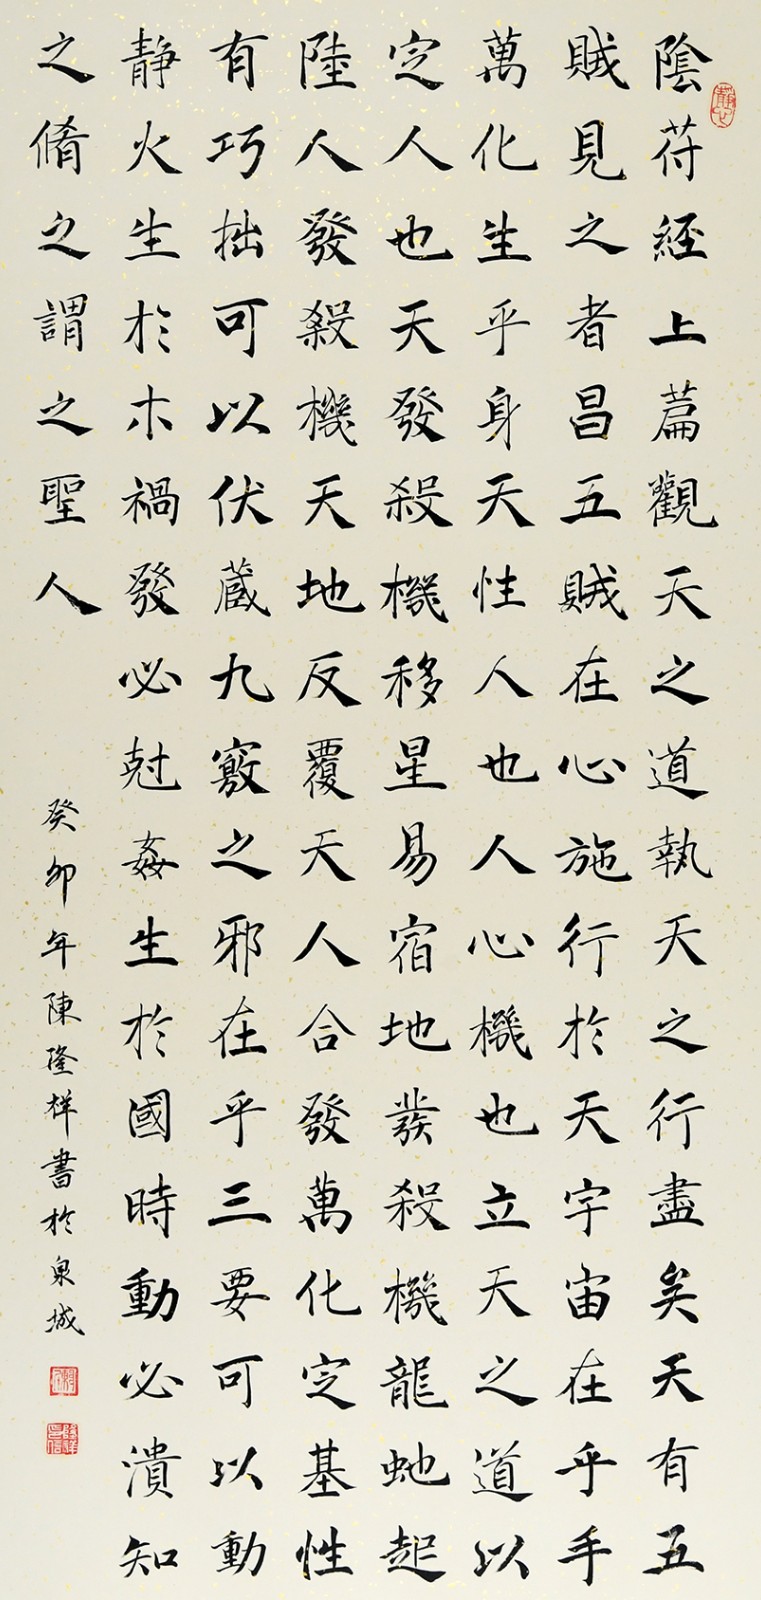 陰苻經上篇觀天之道執天之行盡矣天有五
賊見之者昌五賊在心施行於天宇宙在乎手
萬化生乎身天性人也人心機也立天之道以
定人也天發殺機移星易宿地發殺機龍虵起
陸人發殺機天地反覆天人合發萬化定基性
有巧拙可以伏蔵九竅之邪在乎三要可以動
静火生於木禍發必尅姦生於國時動必潰知
之脩之謂之聖人
癸卯年陳隆祥書於泉城